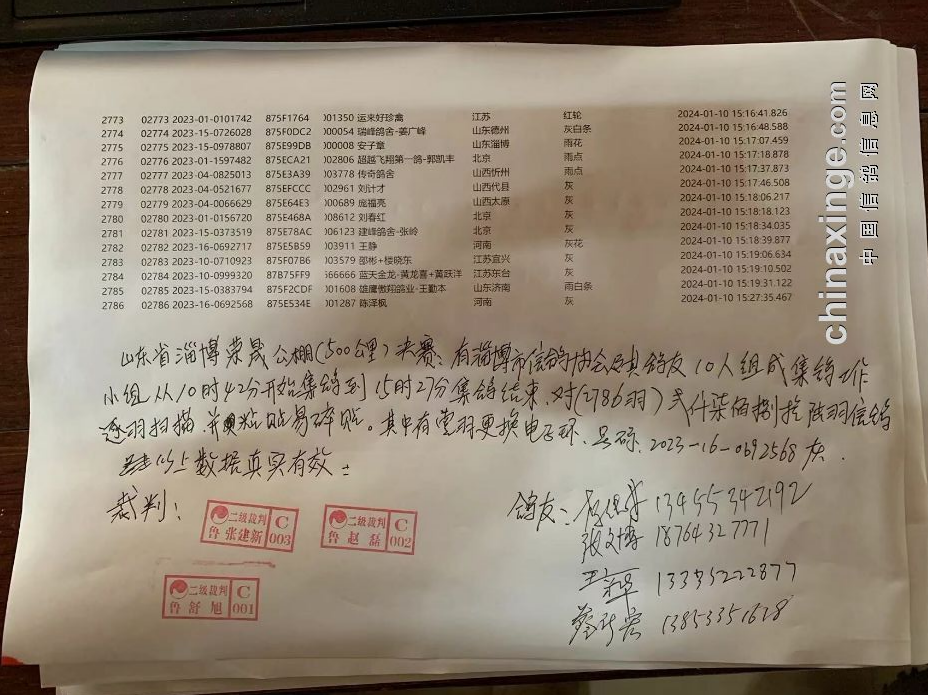 2773 02773 2023-01-0101742 875F1764 001350 运来好珍禽 江苏 红轮 2024-01-10 15:16:41.826
2774 02774 2023-15-0726028 875F0DC2 000054 瑞峰鸽舍-姜广峰 山东德州 灰白条 2024-01-10 15:16:48.588
2775 02775 2023-15-0978807 875E99DB 000008 安子章 山东淄博 雨花 2024-01-10 15:17:07.459
2776 02776 2023-01-1597482 875ECA21 002806 超越飞翔第一鸽-郭凯丰 北京 雨点 2024-01-10 15:17:18.878
2777 02777 2023-04-0825013 875E3A39 003778 传奇鸽舍 山西忻州 雨点 2024-01-10 15:17:37.873
2778 02778 2023-04-0521677 875EFCCC 002961 刘计才 山西代县 灰 2024-01-10 15:17:46.508
2779 02779 2023-04-0066629 875E64E3 000689 庞福亮 山西太原 灰 2024-01-10 15:18:06.217
2780 02780 2023-01-0156720 875E468A 008612 刘春红 北京 灰 2024-01-10 15:18:18.123
2781 02781 2023-15-0373519 875E78AC 006123 建峰鸽舍-张岭 北京 灰 2024-01-10 15:18:34.035
2782 02782 2023-16-0692717 875E5B59 003911 王静 河南 灰花 2024-01-10 15:18:39.877
2783 02783 2023-10-0710923 875F07B6 003579 邵彬+楼晓东 江苏宜兴 灰 2024-01-10 15:19:06.634
2784 02784 2023-10-0999320 87B75FF9 666666 蓝天金龙-黄龙喜+黄跃洋 江苏东台 灰 2024-01-10 15:19:10.502
2785 02785 2023-15-0383794 875F2CDF 001608 雄鹰傲翔鸽业-王勤本 山东济南 雨白条 2024-01-10 15:19:31.122
2786 02786 2023-16-0692568 875E534E 001287 陈泽枫 河南 灰 2024-01-10 15:27:35.467
山东省淄博荣晟公棚(500公里)决赛:有淄博市信鸽协会及其鸽友10人组成集鸽工作
小组从10时42分开始集鸽到15时27分集鸽结束.对(2786羽)贰仟柒佰捌拾陆羽信鸽
逐羽扫描并粘贴易碎贴。其中有壹羽更换电子环.足环.2023-16-0692568灰.
以上数据真实有效
裁判: 鸽友: 13455342192
二级裁判 鲁 张建新 C 003
二级裁判 鲁 赵磊 C 002
张文博 18764327771
13335222877
二级裁判 鲁 舒旭 C 001
13853351628
chinaxinge.com
中国信鸽信息网